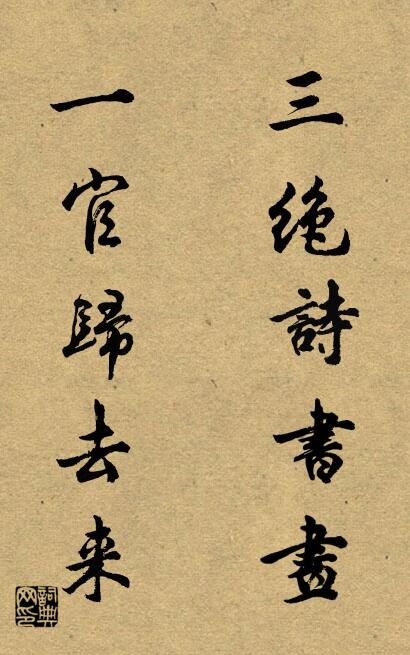 三絶詩書畫
一官歸去来
詞典网印